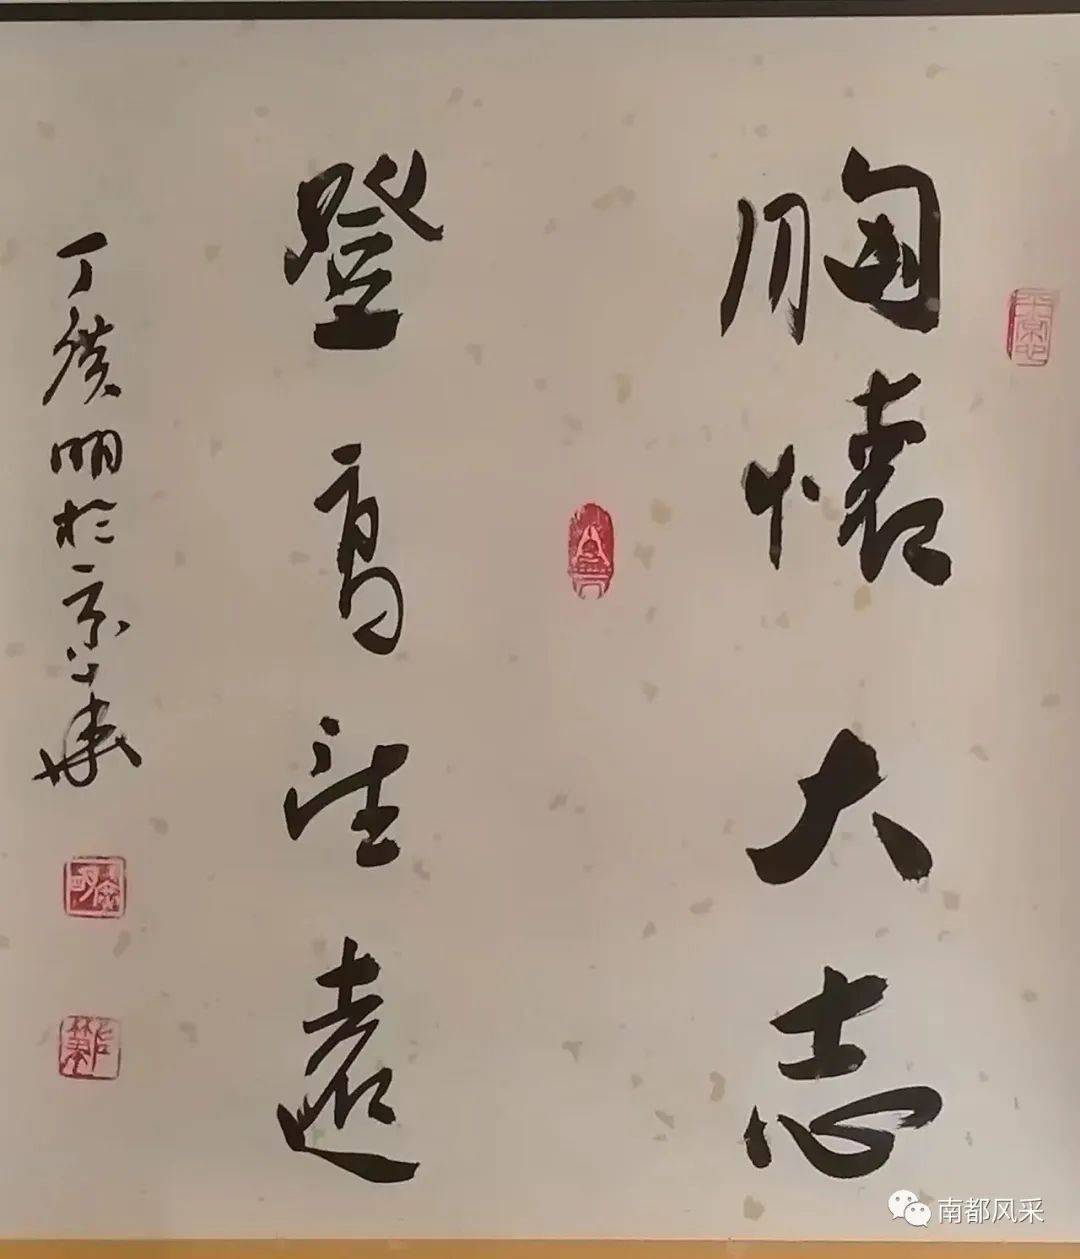 胸懷大志
登高望遠
丁廣明於京華
南都风采